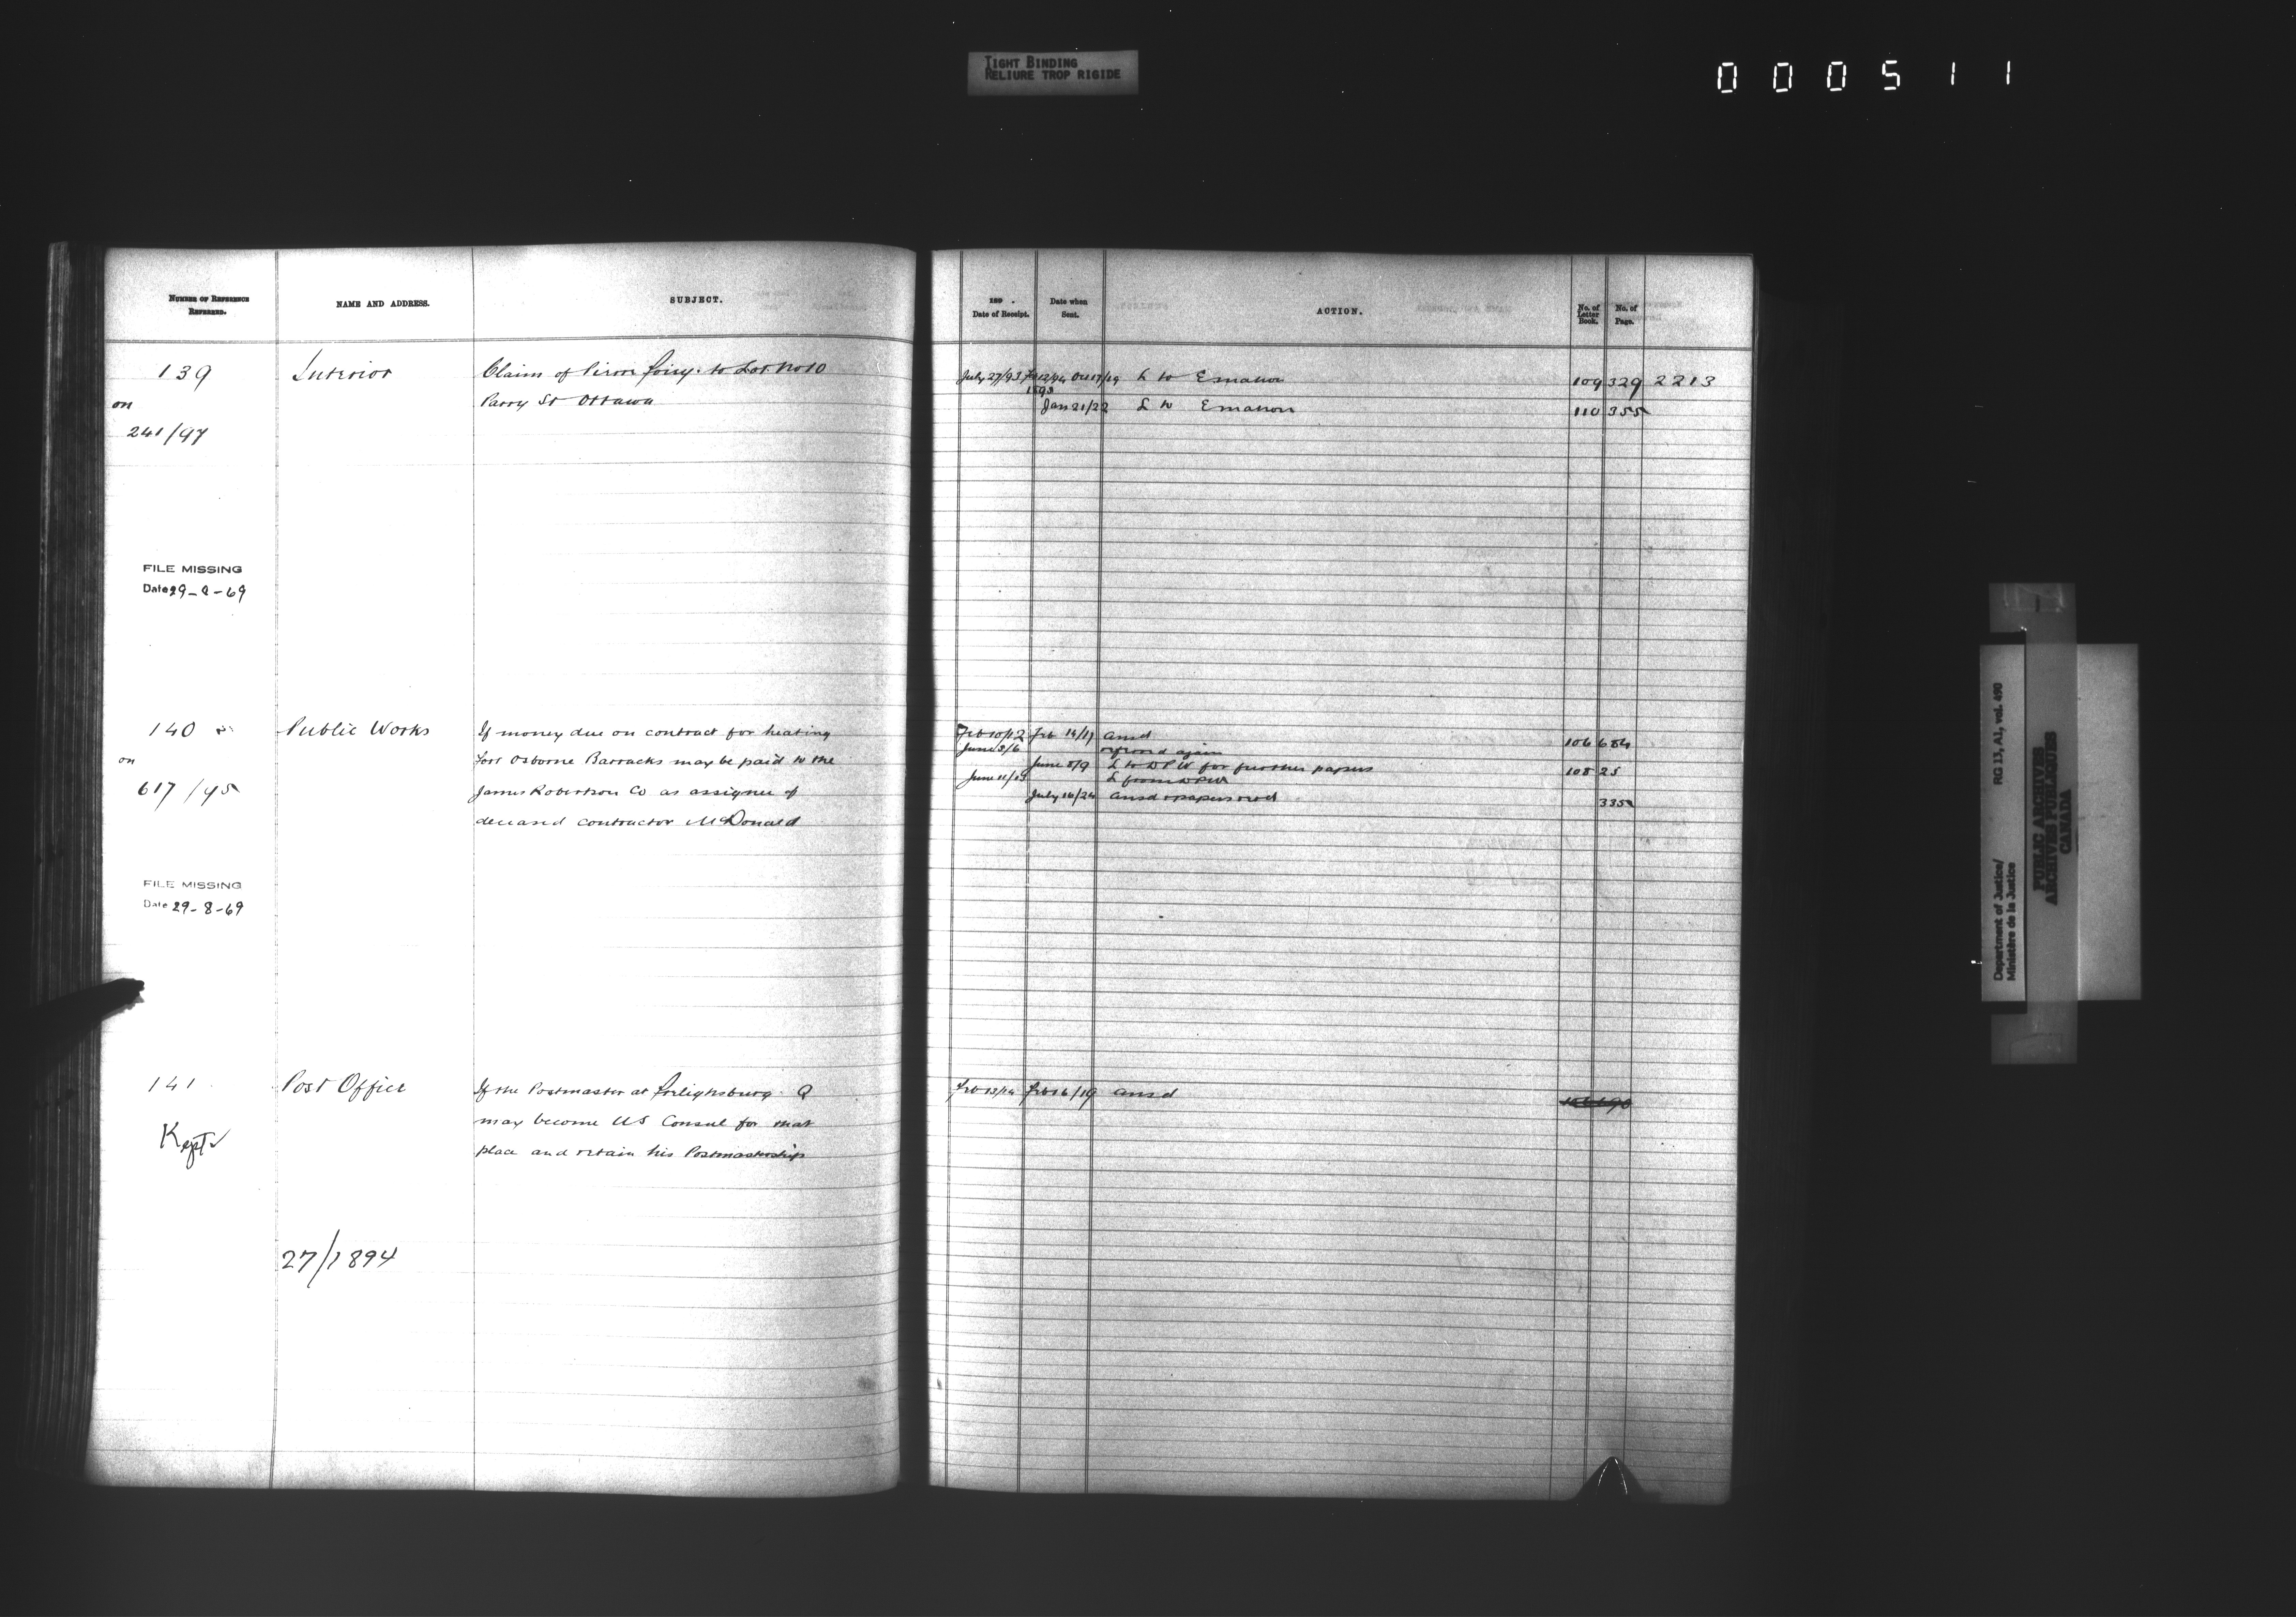 TIGHT BINDING
RELIURE TROP RIGIDE
000511
NUMBER OF REFERENCE
REFERRED.
NAME AND ADDRESS.
SUBJECT.
189 .
Date of Receipt.
Date when
Sent.
ACTION.
No. of
Letter
Book.
No. of
Page.
139
on
241/97
Interior
Claim of to Lot No 10
Parry St Ottawa
July 27/93
1893
Oct 17/19 L to E
109 329 2213
Jan 21/22 L to E
110 355
FILE MISSING
Date 29-8-69
140
on
617/95
Public Works
If money due on contract for heating
Fort Osborne Barracks may be paid to the
James Robertson Co as assignee of
deceased contractor McDonald
Feb 10/12 Feb 14/17 ansd
106 684
June 3/6 referred again
June 8/9 L to DPW for further papers
108 25
June 11/13 L from DPW
July 16/24 ansd & papers retd
335
FILE MISSING
Date 29-8-69
141
Kept
Post Office
If the Postmaster at Frelighsburg Q
may become US Consul for that
place and retain his Postmastership
Feb 13/14 Feb 16/19 ansd
27/1894
Department of Justice/
Ministère de la Justice
RG 13, A1, vol. 490
PUBLIC ARCHIVES
ARCHIVES PUBLIQUES
CANADA